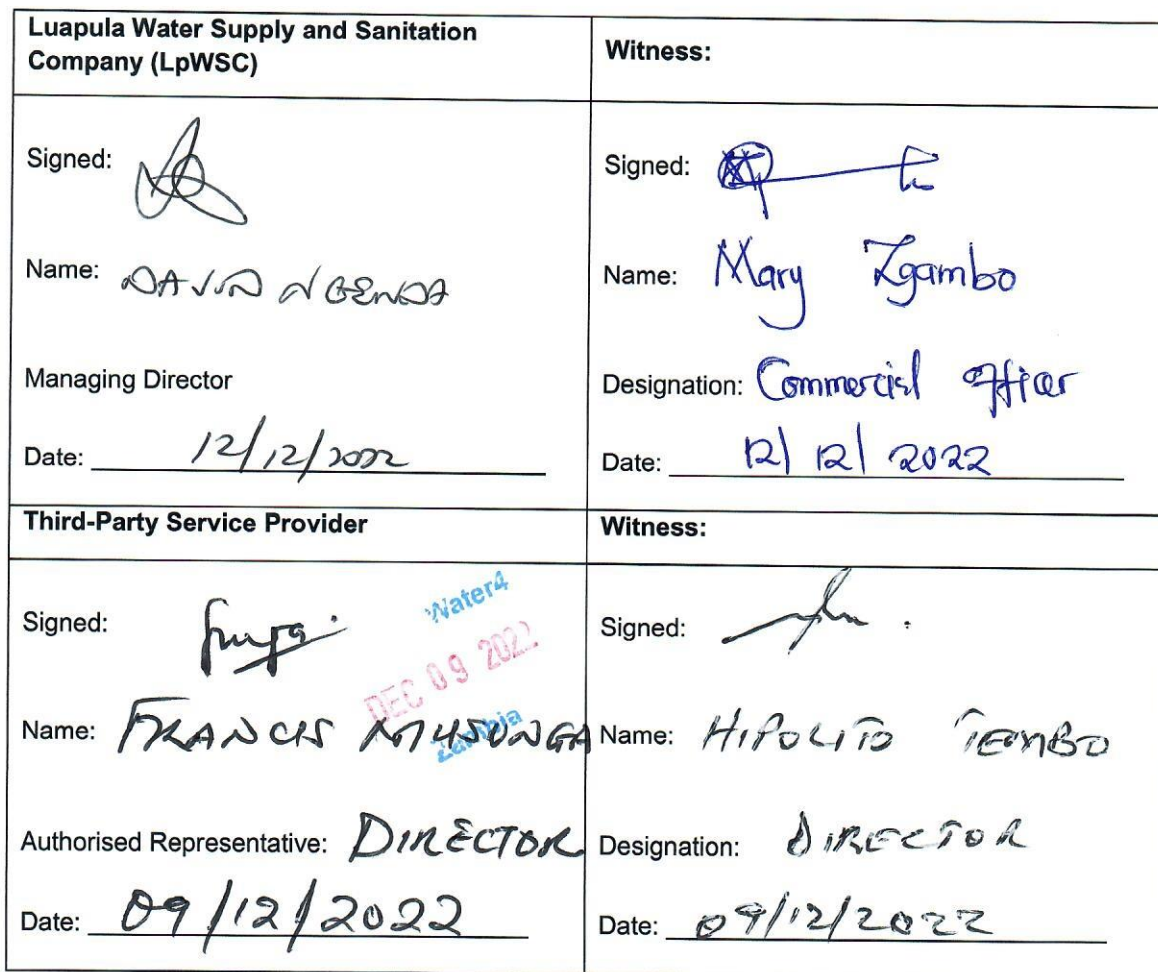 Luapula Water Supply and Sanitation
Company (LpWSC)
Witness:
Signed:
Name: DAVID NGENDA
Managing Director
Date: 12/12/2022
Signed:
Name: Mary Zgambo
Designation: Commercial Officer
Date: 12/12/2022
Third-Party Service Provider
Witness:
Signed:
Water4
DEC 09 2022
Zambia
Name: FRANCIS MUSUNGA
Authorised Representative: DIRECTOR
Date: 09/12/2022
Signed:
Name: HIPOLITO TEMBO
Designation: DIRECTOR
Date: 09/12/2022